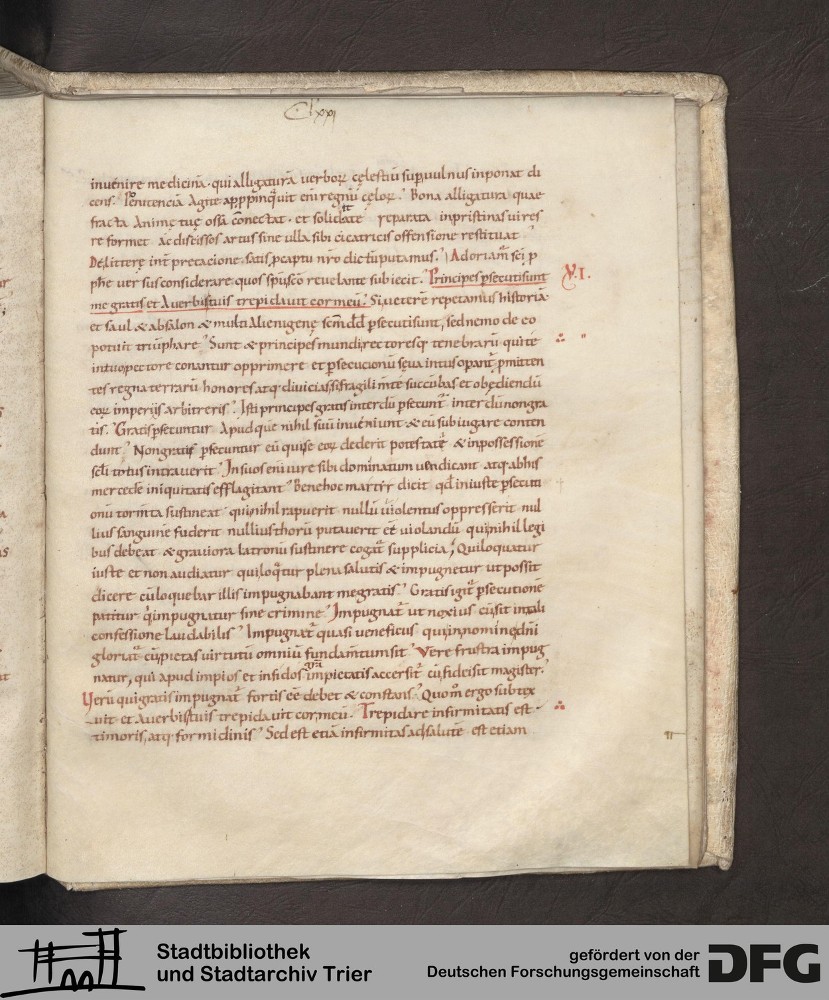 Clxxi
inuenire medicinā · qui alligaturā uerborꝝ cęlestiū sup uulnus inponat di
cens · Penitenciā agite appropinq̄uit eni regnū cęlorꝝ · Bona alligatura quae
fracta animę tuę ossa cōnectat · et soliditate reparata inpristinas uires
reformet ac discissos artus sine ulla sibi cicatricis offensione restituat
De litterę int̄pretacione satis p captu nr̄o dictū putamus · Ad oriam sc̄i p
phę uersus considerare quos sp̄usc̄o reuelante subiecit · Principes ꝑsecuti sunt
me gratis et a uerbis tuis trepidauit cor meū · Si ueterē repetamus historiā
XXI.
et saul & absalon & multi alienigenę sc̄m dd̄ ꝑsecuti sunt, sed nemo de eo
potuit triūphare · Sunt & principes mundi rectoresq; tenebrarū qui te
in tuo pectore conantur opprimere et ꝑsecucionū seua intus opant̄ · pmitten
tes regna terrarū honores atq; diuicias, si fragili m̄te succūbas et obędiendū
eorꝝ imperiis arbitreris · Isti principes gratis interdū ꝑsecunt̄ · interdū non gra
tis · Gratis ꝑsecuntur apud quę nihil suū inueniunt & eū subiugare conten
dunt · Non gratis ꝑsecuntur eū qui se eorꝝ dederit potestate & in possessione
sc̄li totus intrauerit · In suos eni iure sibi dominatum uendicant atq; ab his
mercedē iniquitatis efflagitant · Bene hoc martir dicit qd̄ iniuste ꝑsecuti
onū torm̄ta sustineat · qui nihil rapuerit nullū uiolentus oppresserit nul
lius sanguinē fuderit nullius thorū putauerit eē uiolandū qui nihil legi
bus debeat & grauiora latronū sustinere cogat̄ supplicia, Qui loquatur
iuste et non audiatur qui loq̄tur plena salutis & impugnetur ut possit
dicere cū loquebar illis impugnabant me gratis · Gratis igit̄ ꝑsecutionē
patitur q̄ impugnatur sine crimine · Impugnat̄ ut noxius cū sit in tali
confessione laudabilis · Impugnat̄ quasi ueneficus qui in nomine dn̄i
gloriat̄ cū pietas uirtutū omniū fundam̄tum sit · Vere frustra impug
natur, qui apud impios et infidos impietatis accersit̄ cū fidei sit magister ·
Verū qui gratis impugnat̄ fortis eē debet & constans · Quom̄ ergo subtex
uit et a uerbis tuis trepidauit cor meū · Trepidare infirmitatis est ·
timoris, atq; formidinis · Sed est etiā infirmitas ad salutē est etiam
Stadtbibliothek
und Stadtarchiv Trier
gefördert von der
Deutschen Forschungsgemeinschaft
DFG